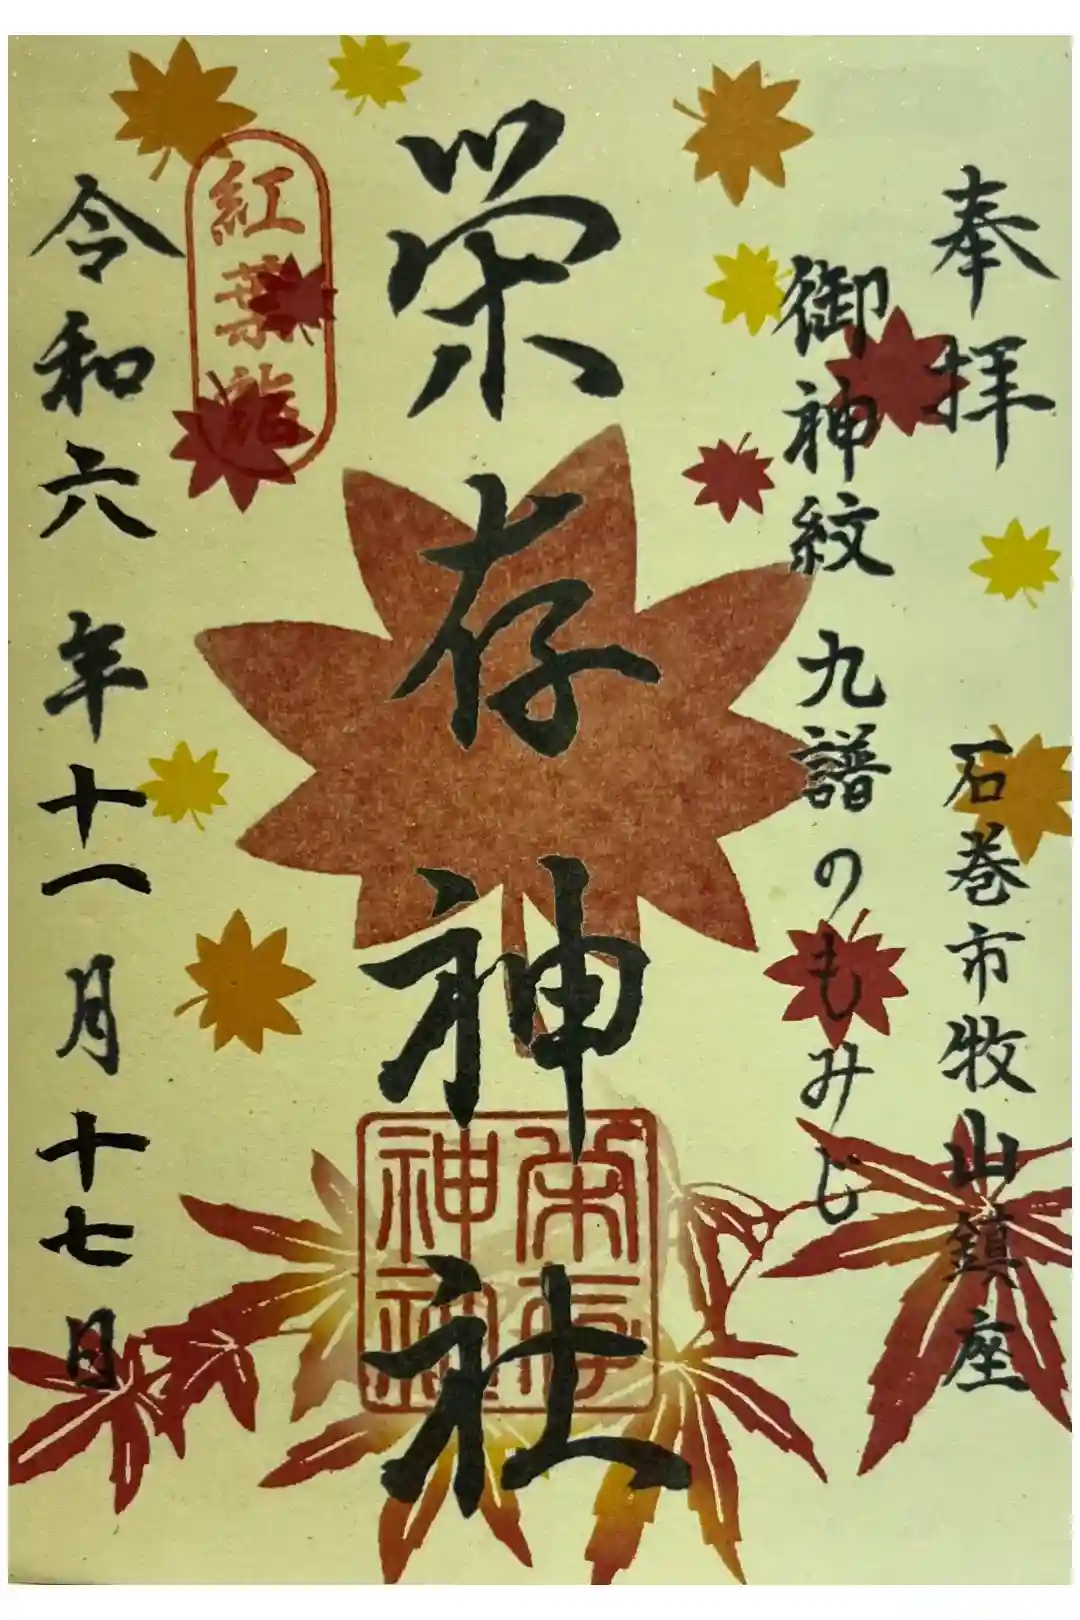 奉拝
石巻市牧山鎮座
御神紋 九譜のもみじ
栄存神社
栄存
神璽
紅葉龍
令和六年十一月十七日